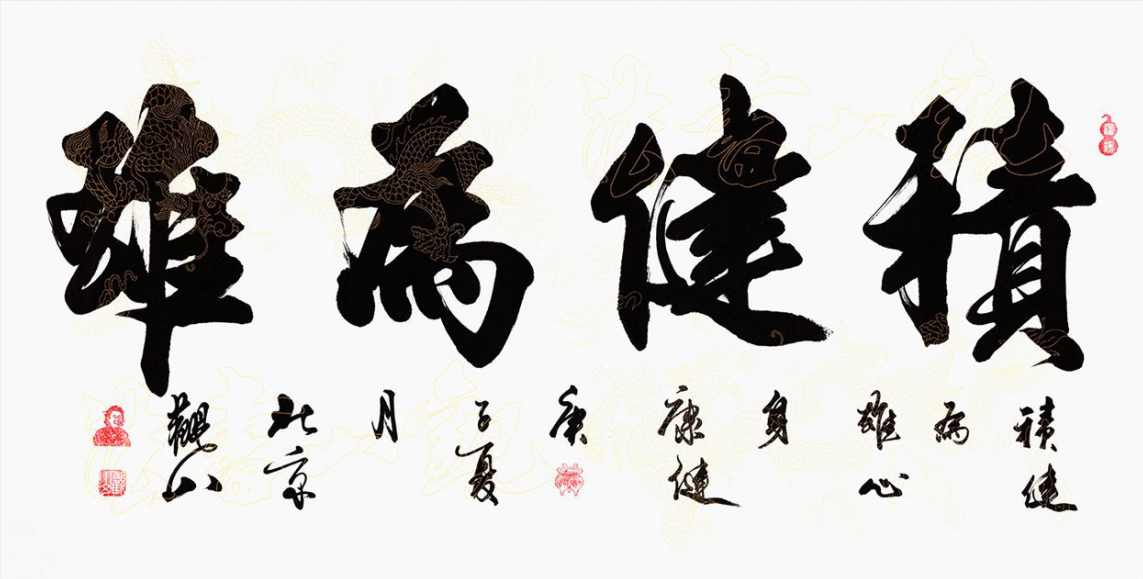 積健為雄
積健
為
雄心
身
康健
庚
子夏
月
北京
觀山